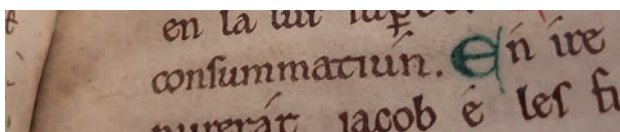 en la lur
conſummatiun. En ire
iacob é leſ